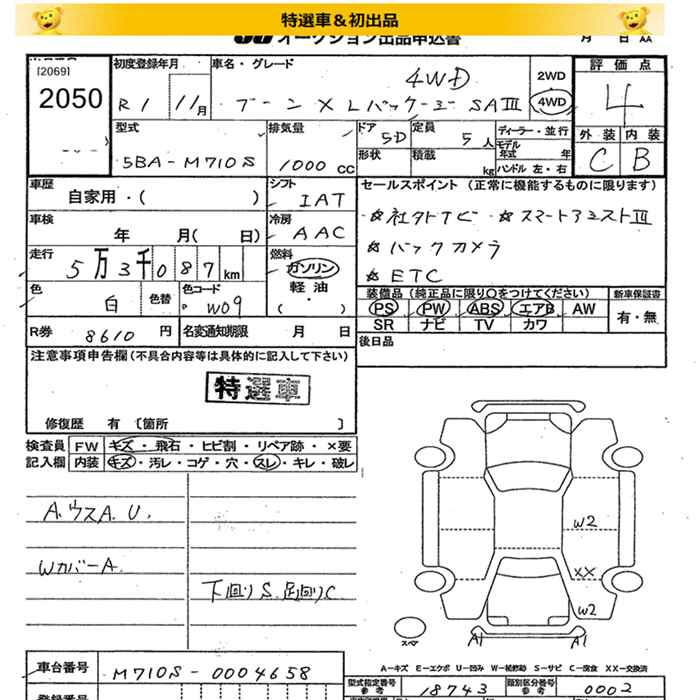 特選車＆初出品
オークション出品申込書 月 日 AA
[2069]
2050
初度登録年月
R1 11月
車名・グレード
4WD
ブーン X Lパッケージ SAⅢ
2WD
4WD
評価点
4
外装 内装
C B
型式
5BA-M710S
排気量
1000 CC
ドア 5D
形状
定員 5人
積載 kg
ディーラー・並行
モデル年式 年
ハンドル 左・右
車歴
自家用・( )
シフト
IAT
車検
年 月( 日)
冷房
AAC
走行
5万3千087km
燃料
ガソリン
軽油
・( )
色
白 色替
色コード
W09
R券 8610 円
名変通知期限 月 日
セールスポイント (正常に機能するものに限ります)
☆社外ナビ ☆スマートアシストⅢ
☆バックカメラ
☆ETC
装備品(純正品に限り〇をつけてください) 新車保証書
PS PW ABS エアB AW 有・無
SR ナビ TV カワ
後日品
注意事項申告欄(不具合内容等は具体的に記入して下さい)
特選車
修復歴 有 〔箇所 〕
検査員記入欄
FW キズ・飛石・ヒビ割・リペア跡・×要
内装 キズ・汚レ・コゲ・穴・スレ・キレ・破レ
A.ウスA.U.
Wカバー A
下回りS 足回りC
W2
XX
W2
A1 A1
スペア
A－キズ E－エクボ U－凹み W－補修跡 S－サビ C－腐食 XX－交換済
車台番号
M710S-0004658
登録番号
型式指定番号 参考 18743
類別区分番号 参考 0002